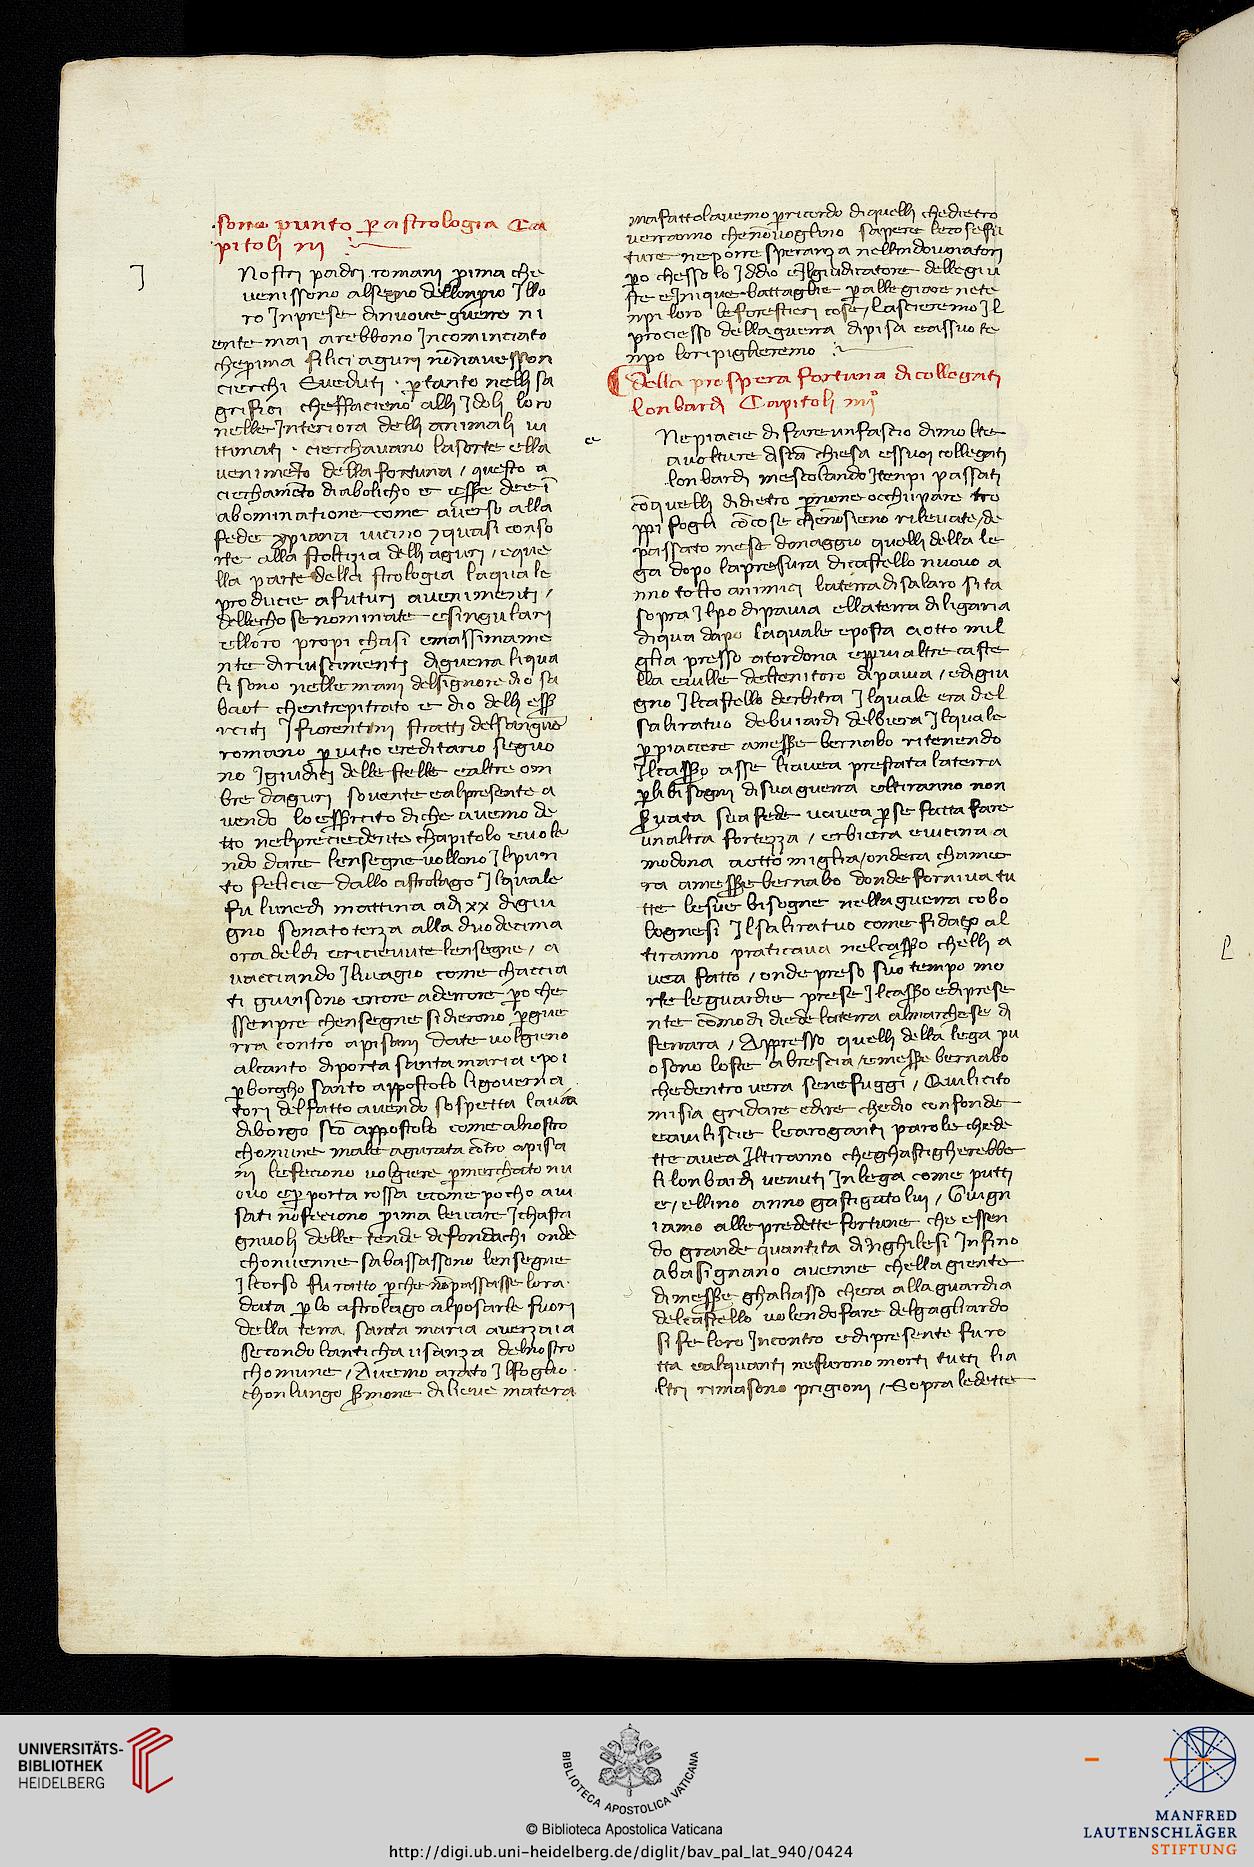 sono punto p astrologia Ca
pitoli iii
Nostri padri romani prima che
venissono al segno dellonpio Jllo
ro Jnprese dinuove guerre ni
ente mai arebbono Jncominciato
che prima filici aguri non navesson
cierchi Eveduti · ptanto nelli sa
grifici cheffacieno alli Jdoli loro
nelle Jnteriora delli animali vi
ttimati · cierchavano lasorte ella
venimeto della fortuna / questo a
abominatione come averso alla
fede xpiana vicino
rte alla stoltizia delli aguri / eque
lla parte della strologia laquale
producie afuturi avenimenti /
ello ro propi chasi emassimame
nte diriuscimenti diguerra liqua
li sono nelle mani delsignore dio sa
baot chentrepitrato e dio delli
rciti J fiorentini stratti delsangue
romano p vitio ereditario seguo
no Jgiudici delle stelle ealtre om
bre daguri sovente ealpresente a
vendo lo essercito di che avemo de
tto nelpreciedente chapitolo evole
ndo dare lensegne vollono Jlpun
to felicie dallo astrolago Jlquale
fu lunedi mattina adi xx digiu
gno sonato terza alla duodecima
ora deldi ericievute lensegne / a
vacciando Jlviagio come chaccia
ti guinsono errore aderrore po che
ssenpre chensegne si dierono pgue
rra contro apisani date volgieno
alcanto diporta santa maria epoi
pborgho santo appostolo ligoverna
tori delfatto avendo sospetta lavia
diborgo sco appostolo come alnostro
chomune male agurata cotro apisa
ni lefeciono volgiere pmerchato nu
ovo e p porta rossa ecome pocho avi
sati no feciono prima levare Jchasta
gnuoli delle tende defondachi onde
chonvenne sabassassono lensegne
Jlcorso fu ratto pche nopassasse lora
data plo astrolago alposarle fuori
della terra santa maria averzaia
secondo lanticha usanza delnostro
chomune / Avemo arato Jlfoglio
chonlungo smone dilieve matera
mafattolavemo pricordo diquelli chedietro
verranno chenovoglino sapere lecosefu
ture neporre speranza nellindovinatori
po chesso lo Jddio eJlgiudicatore dellegiu
ste eJnique battaglie
npi loro leforestieri cose / lascieremo Jl
prociesso dellaguerra dipisa eassuo te
npo loripiglieremo
della prospera fortuna dicollegati
lonbardi Capitoli iiii°
e
Ne piacie di fare un fascio dimolte
avolture disca chiesa essuoi collegati
lonbardi mescolando Jtenpi passati
coquelli didietro pnone occhupare tro
ppi fogli cocose chenosieno rilevate / de
passato mese dimaggio quelli della le
ga dopo lapresura dicastello nuovo a
nno tolto animici laterra disalaro sita
sopra Jlpo dipavia ellaterra diligaria
diqua dapo laquale eposta aotto mil
glia presso atordona eppiu altre caste
lla eville deltenitoro dipavia / edigiu
gno Jlcastello derbitra Jlquale era del
ppiaciere amesse bernabo ritenendo
Jlcasso asse liavea prestata laterra
plibisogni disuaguerra eltiranno non
svata sua fede vavea pse fatta fare
unaltra fortezza / erbiera evicina a
modona aotto miglia / ondera chame
ra amesse bernabo donde forniva tu
tte lesue bisogne nellaguerra cobo
lognesi Jlsaliratuo come fidato al
tiranno praticava nelcasso chelli a
vea fatto / onde preso suo tempo mo
rte leguardie prese Jlcasso edi prese
nte comodi diede laterra almarchese di
ferrara / Appresso quelli della lega pu
osono loste abrescia / emesse bernabo
chedentro vera senefuggi / Quilicito
misia gridare edire chedio confonde
eaviliscie learoganti parole chede
tte avea Jltiranno cheghastigherebbe
lilonbardi venuti Jnlega come putti
e / ellino anno gastigato lui / Giugn
iamo alle predette fortune che essen
do grande quantita dinghilesi Jnfino
abasignano avenne chella giente
dimesse ghaliasso chera alla guardia
delcastello volendo fare delgagliardo
si fe loro Jncontro edipresente furo
tta ealquanti nefurono morti tutti lia
ltri rimasono prigioni / Sopra ledette
UNIVERSITÄTS-
BIBLIOTHEK
HEIDELBERG
BIBLIOTECA APOSTOLICA VATICANA
© Biblioteca Apostolica Vaticana
http://digi.ub.uni-heidelberg.de/diglit/bav_pal_lat_940/0424
MANFRED
LAUTENSCHLÄGER
STIFTUNG